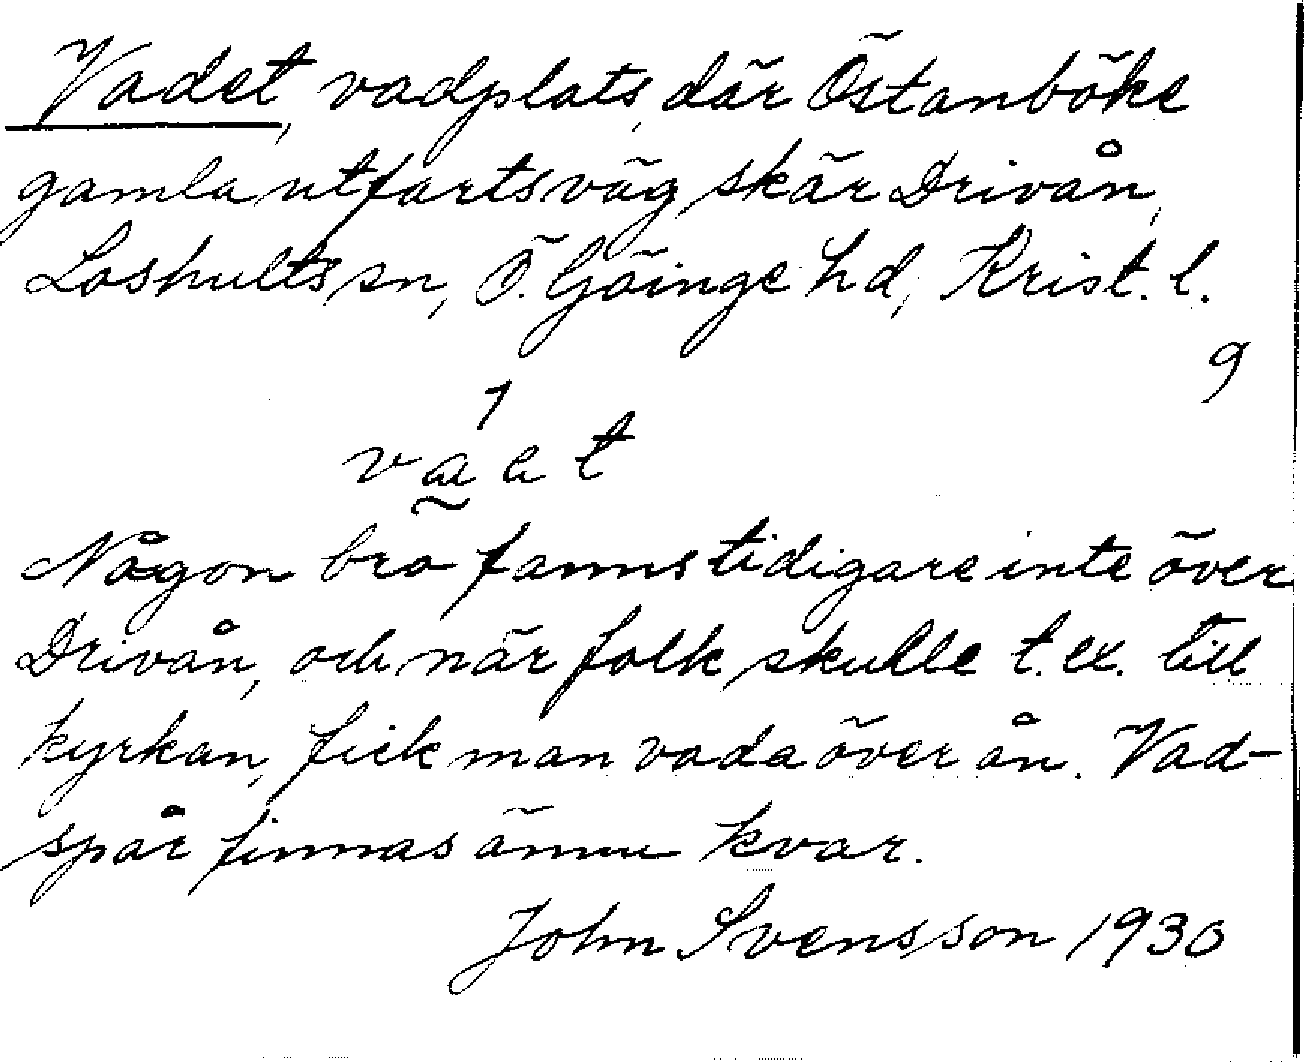 Vadet, vadplats, där Östanböke
gamla utfartsväg skär Drivån,
Loshults sn, Ö. Göinge hd, Krist. l.
9
1
va̰et
Någon bro fanns tidigare inte över
Drivån, och när folk skulle t.ex. till
kyrkan, fick man vada över ån. Vad-
spår finnas ännu kvar.
John Svensson 1930